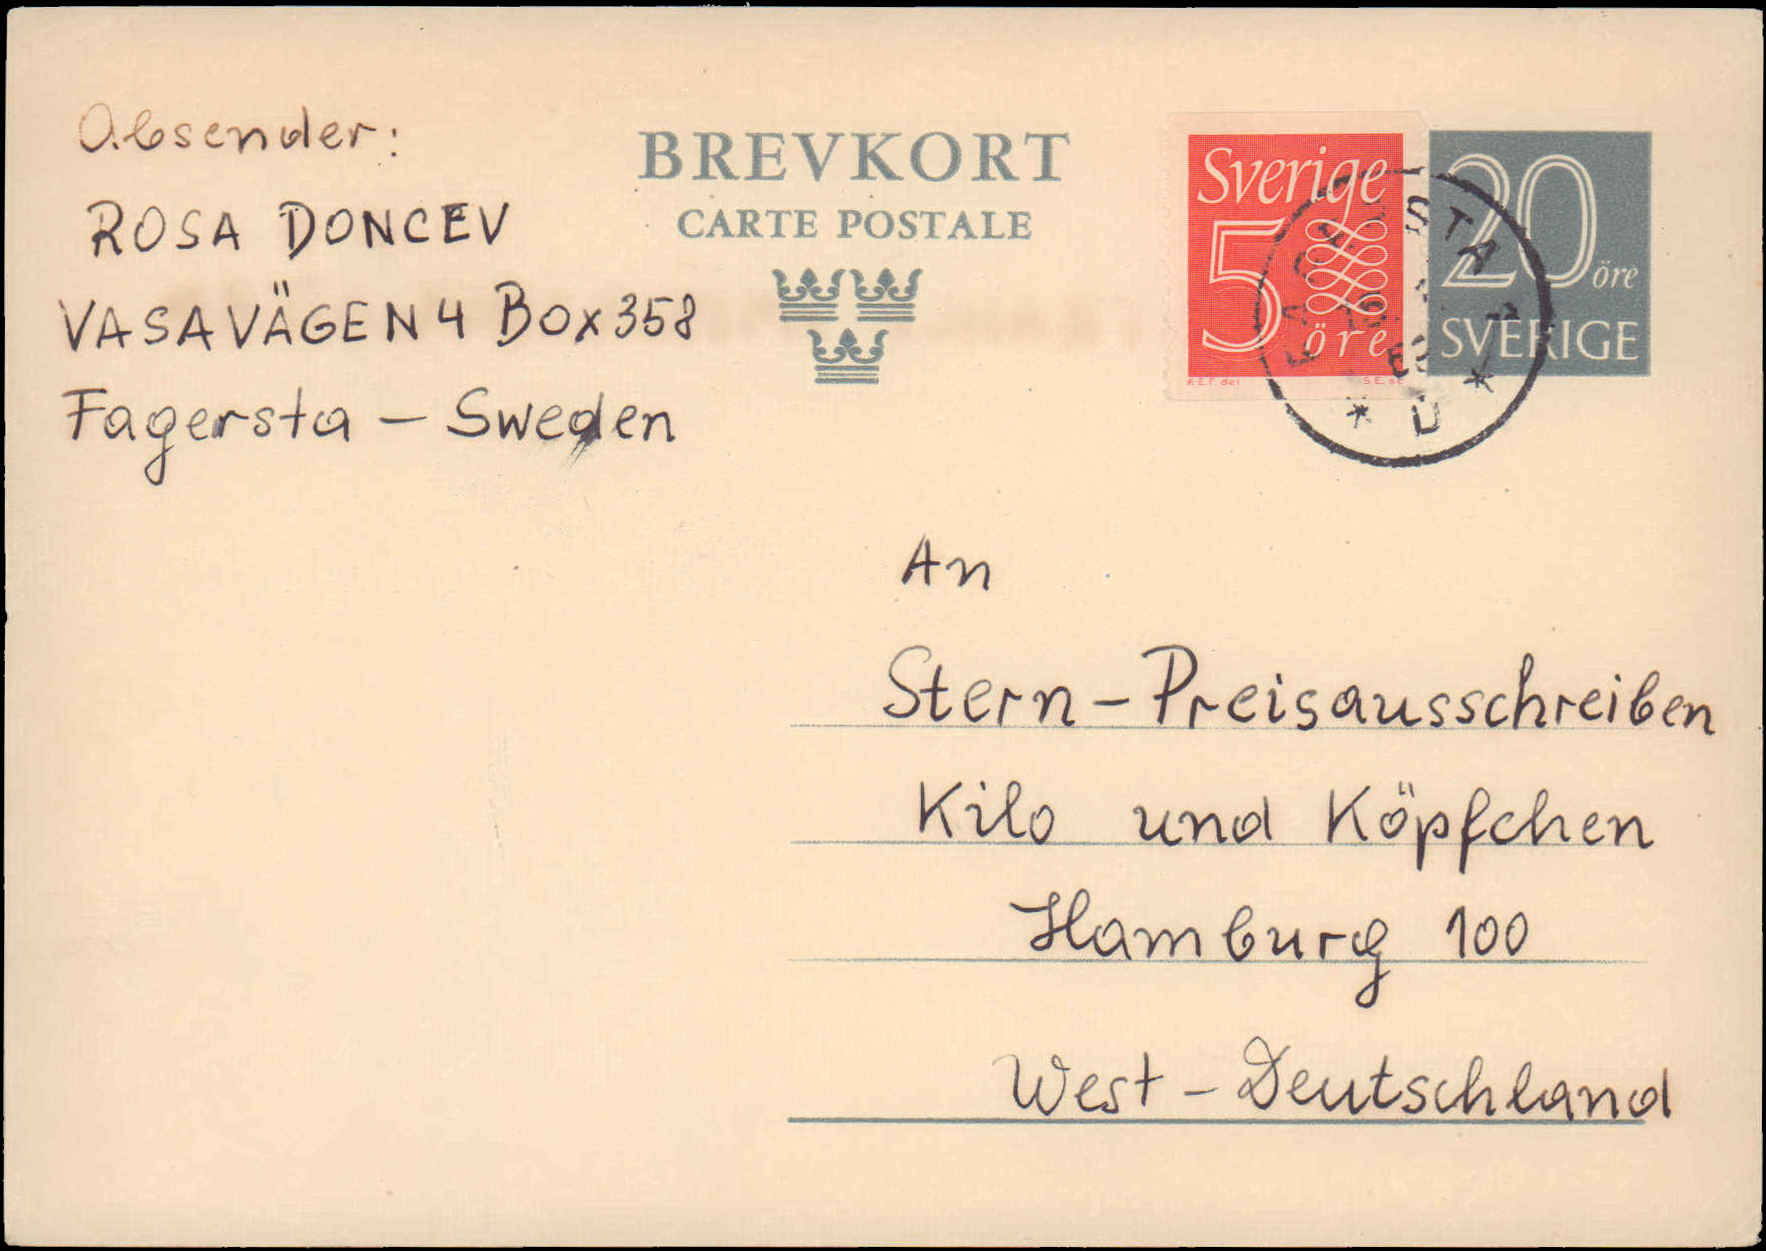 Absender:
ROSA DONCEV
VASAVÄGEN 4 Box 358
Fagersta – Sweden
BREVKORT
CARTE POSTALE
Sverige
5
öre
20
öre
SVERIGE
* U *
An
Stern – Preisausschreiben
Kilo und Köpfchen
Hamburg 100
West – Deutschland